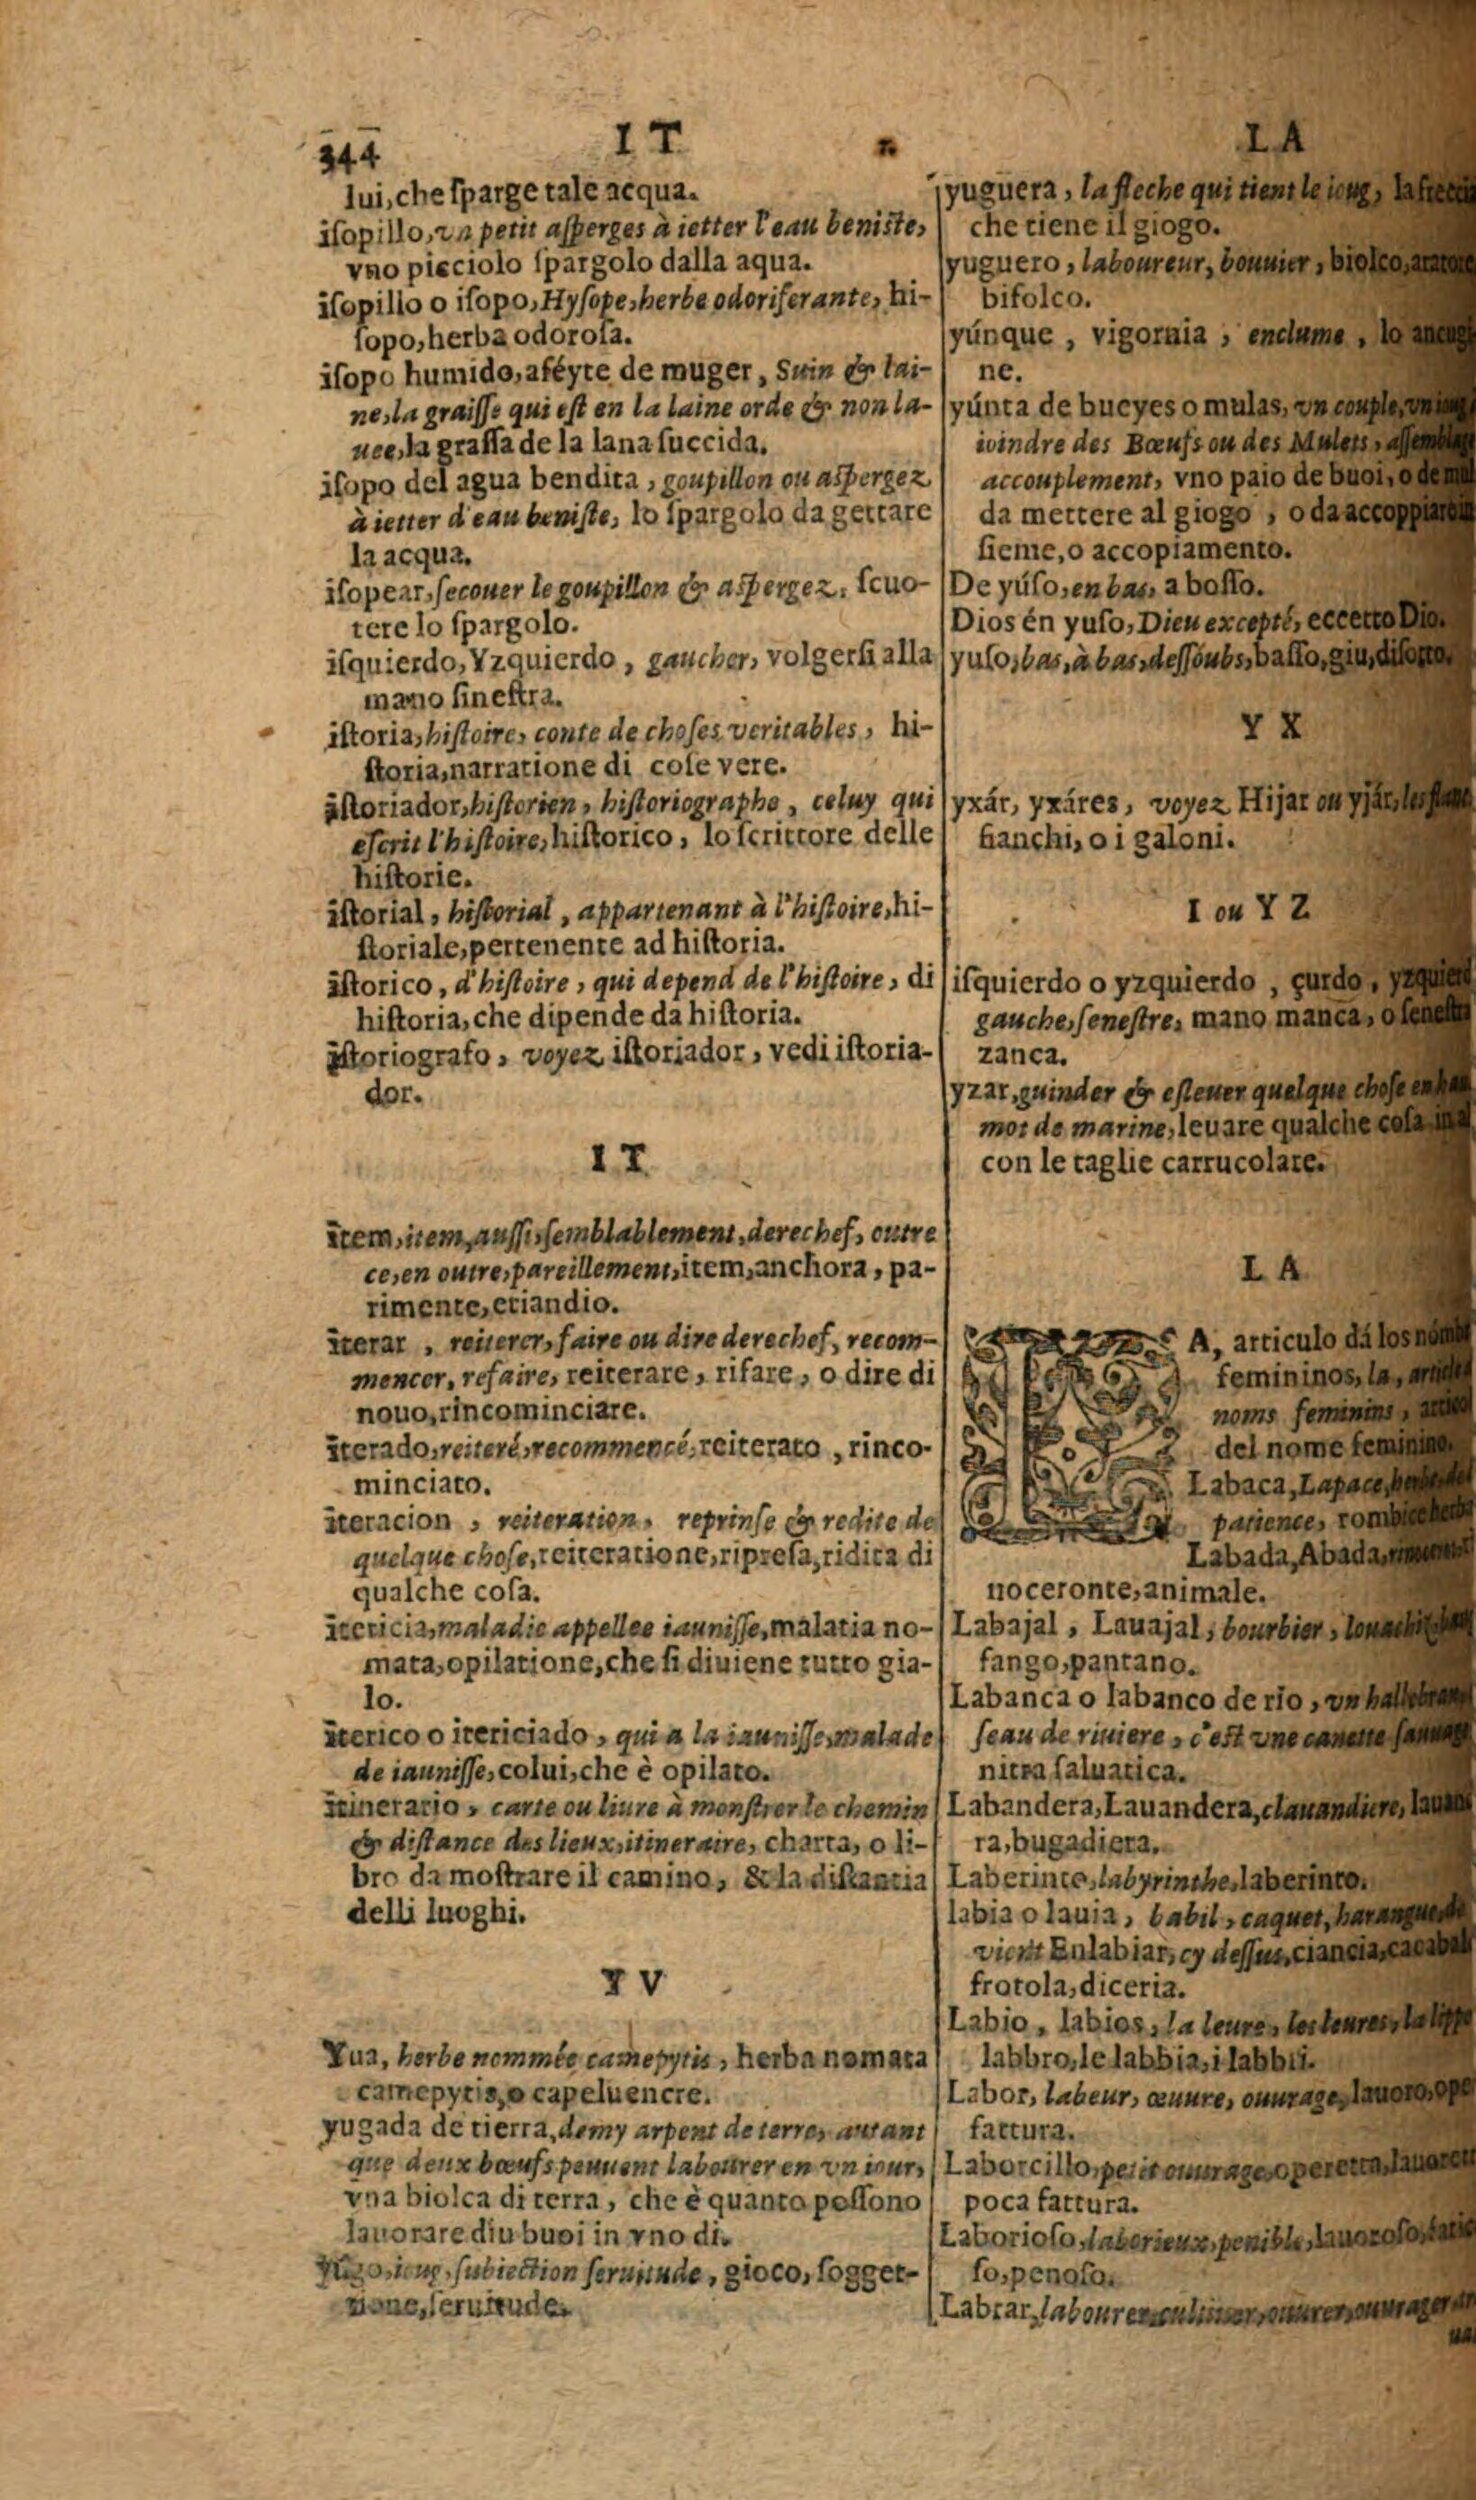 344
IT
LA
lui, che ſparge tale acqua.
iſopillo, vn petit aſperges à ietter l'eau beniſte,
vno picciolo ſpargolo dalla aqua.
iſopillo o iſopo, Hyſope, herbe odoriferante, hi-
ſopo, herba odoroſa.
iſopo humido, aféyte de muger, Suin & lai-
ne, la graiſſe qui eſt en la laine orde & non la-
uee, la graſſa de la lana ſuccida.
iſopo del agua bendita, goupillon ou aſpergez
à ietter d'eau beniſte, lo ſpargolo da gettare
la acqua.
iſopear, ſecouer le goupillon & aſpergez, ſcuo-
tere lo ſpargolo.
iſquierdo, Yzquierdo, gaucher, volgerſi alla
mano ſineſtra.
iſtoria, hiſtoire, conte de choſes veritables, hi-
ſtoria, narratione di coſe vere.
iſtoriador, hiſtorien, hiſtoriographe, celuy qui
eſcrit l'hiſtoire, hiſtorico, lo ſcrittore delle
hiſtorie.
iſtorial, hiſtorial, appartenant à l'hiſtoire, hi-
ſtoriale, pertenente ad hiſtoria.
iſtorico, d'hiſtoire, qui depend de l'hiſtoire, di
hiſtoria, che dipende da hiſtoria.
iſtoriografo, voyez iſtoriador, vedi iſtoria-
dor.
IT
item, item, auſſi, ſemblablement, derechef, outre
ce, en outre, pareillement, item, anchora, pa-
rimente, etiandio.
iterar, reiterer, faire ou dire derechef, recom-
mencer, refaire, reiterare, rifare, o dire di
nouo, rincominciare.
iterado, reiteré, recommencé, reiterato, rinco-
minciato.
iteracion, reiteration, reprinſe & redite de
quelque choſe, reiteratione, ripreſa, ridita di
qualche coſa.
itericia, maladie appellee iauniſſe, malatia no-
mata, opilatione, che ſi diuiene tutto gia-
lo.
iterico o itericiado, qui a la iauniſſe, malade
de iauniſſe, colui, che è opilato.
itinerario, carte ou liure à monſtrer le chemin
& diſtance des lieux, itineraire, charta, o li-
bro da moſtrare il camino, & la diſtantia
delli luoghi.
YV
Yua, herbe nommée camepytis, herba nomata
camepytis, o capeluenere.
yugada de tierra, demy arpent de terre, autant
que deux bœufs peuuent labourer en vn iour,
vna biolca di terra, che è quanto poſſono
lauorare diu buoi in vno di.
yugo, ioug, ſubiection ſeruitude, gioco, ſogget-
tione, ſeruitude.
yuguera, la fleche qui tient le ioug, la freccia
che tiene il giogo.
yuguero, laboureur, bouuier, biolco, aratore
bifolco.
yúnque, vigornia, enclume, lo ancugi
ne.
yúnta de bueyes o mulas, vn couple, vn ioug,
ioindre des Bœufs ou des Mulets, aſſemblage
accouplement, vno paio de buoi, o de mul
da mettere al giogo, o da accoppiare in
ſieme, o accopiamento.
De yúſo, en bas, a boſſo.
Dios én yuſo, Dieu excepté, eccetto Dio.
yuſo, bas, à bas, deſſoubs, baſſo, giu, diſotto.
YX
yxár, yxáres, voyez Hijar ou yjár, les flanc
fianchi, o i galoni.
I ou Y Z
iſquierdo o yzquierdo, çurdo, yzquierd
gauche, ſeneſtre, mano manca, o ſeneſtra
zanca.
yzar, guinder & eſleuer quelque choſe en hau
mot de marine, leuare qualche coſa in al
con le taglie carrucolare.
LA
A, articulo dá los nómbr
femininos, la, article
noms feminins, artico
del nome feminino.
Labaca, Lapace, herbe
patience, rombice herba
Labada, Abada,
noceronte, animale.
Labajal, Lauajal, bourbier,
fango, pantano.
Labanca o labanco de rio, vn hallebran
ſeau de riuiere, c'eſt vne canette ſauuage
nitra ſaluatica.
Labandera, Lauandera, clauandiere, lauan
ra, bugadiera.
Laberinto, labyrinthe, laberinto.
labia o lauia, babil, caquet, harangue, de
vient Enlabiar, cy deſſus, ciancia, cacabal
frotola, diceria.
Labio, labios, la leure, les leures, la lippe
labbro, le labbia, i labbri.
Labor, labeur, œuure, ouurage, lauoro, ope
fattura.
Laborcillo, petit ouurage, operetta, lauoret
poca fattura.
Laborioſo, laborieux, penible, lauoroſo, fatic
ſo, penoſo.
Labrar, labourer, cultiuer, ouurer, ouurager